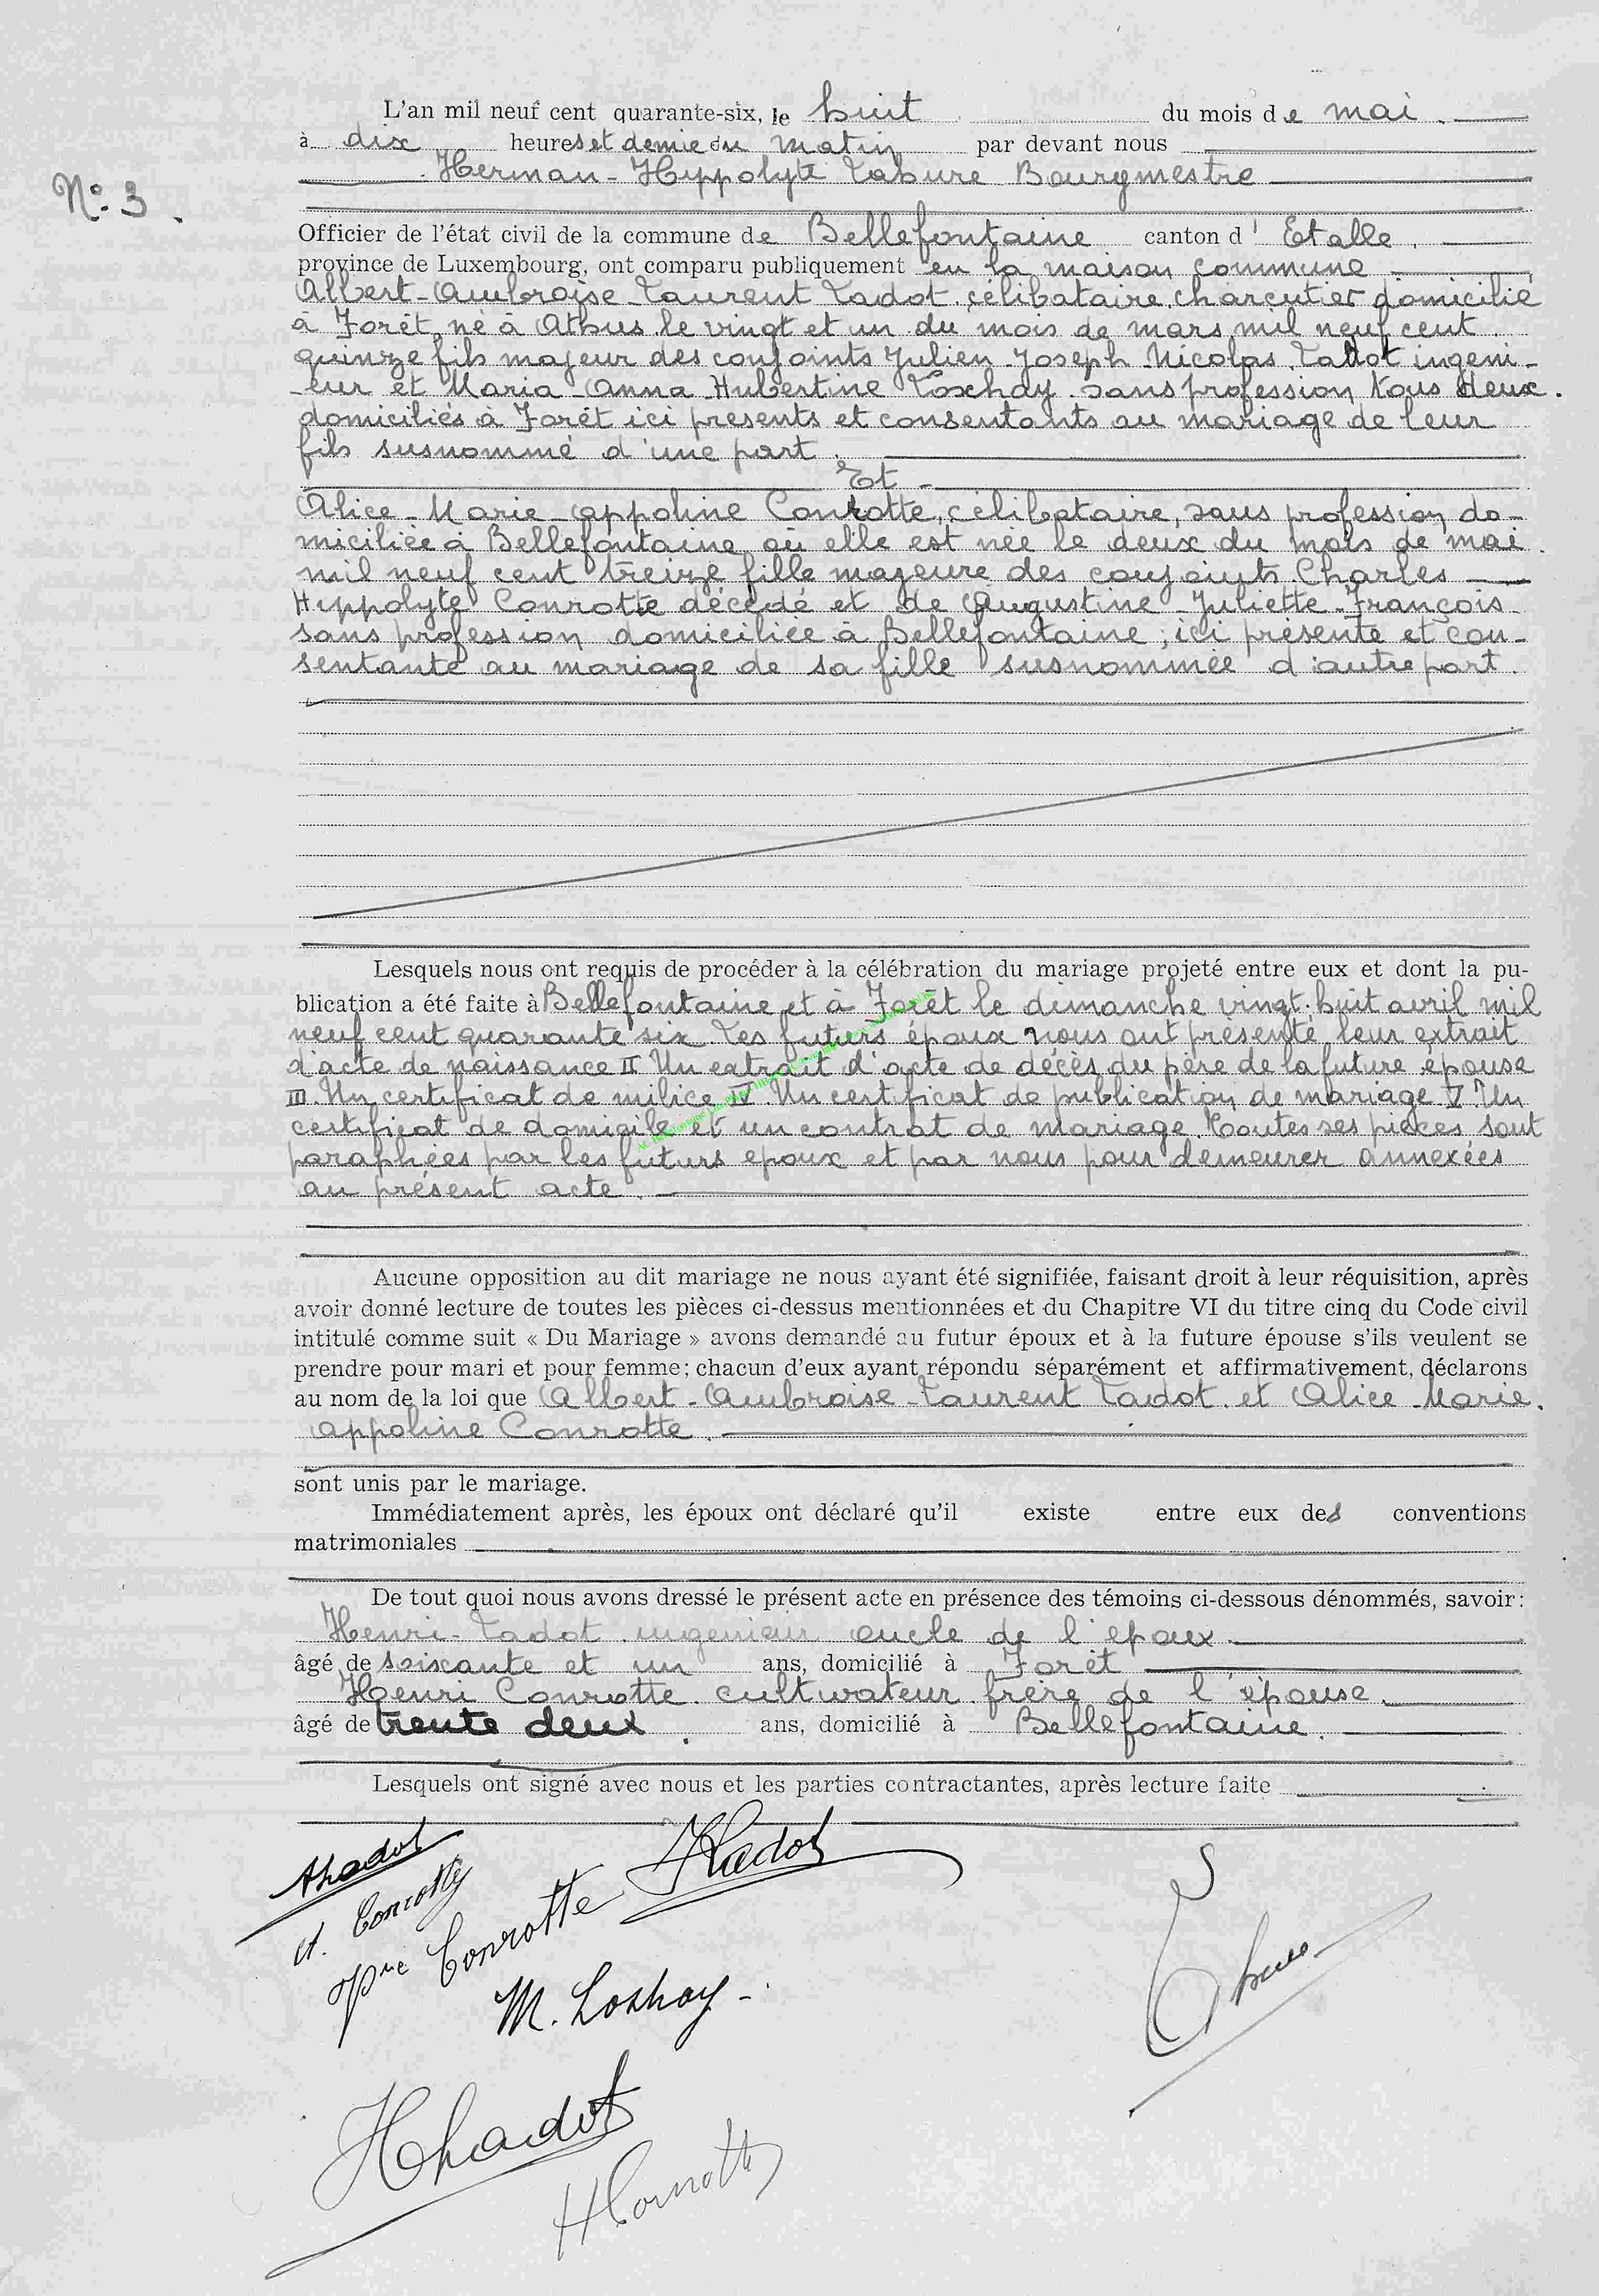 L'an mil neuf cent quarante-six, le huit du mois de mai.
à dix heures et demie du matin par devant nous
Herman-Hippolyte Labure Bourgmestre
N° 3.
Officier de l'état civil de la commune de Bellefontaine canton d' Etalle.
province de Luxembourg, ont comparu publiquement en la maison commune
Albert-Ambroise-Laurent Ladot célibataire charcutier domicilié
à Forêt né à Athus le vingt et un du mois de mars mil neuf cent
quinze fils majeur des conjoints Julien-Joseph-Nicolas Ladot ingeni-
-eur et Maria-Anna-Hubertine Loxhay sans profession tous deux.
domiciliés à Forêt ici présents et consentants au mariage de leur
fils susnommé d'une part.
Et -
Alice-Marie-Appoline Conrotte, célibataire, sans profession do-
miciliée à Bellefontaine où elle est née le deux du mois de mai.
mil neuf cent treize fille majeure des conjoints Charles
Hippolyte Conrotte décédé et de Augustine-Juliette-François
sans profession domiciliée à Bellefontaine, ici présente et con-
sentante au mariage de sa fille susnommée d'autre part.
Lesquels nous ont requis de procéder à la célébration du mariage projeté entre eux et dont la pu-
blication a été faite à Bellefontaine et à Forêt le dimanche vingt-huit avril mil
neuf cent quarante six. Les futurs époux nous ont présenté leur extrait
d'acte de naissance II Un extrait d'acte de décès du père de la future épouse
III. Un certificat de milice IV Un certificat de publication de mariage V. Un
certificat de domicile et un contrat de mariage. Toutes ses pièces sont
paraphées par les futurs epoux et par nous pour demeurer annexées
au présent acte.
Aucune opposition au dit mariage ne nous ayant été signifiée, faisant droit à leur réquisition, après
avoir donné lecture de toutes les pièces ci-dessus mentionnées et du Chapitre VI du titre cinq du Code civil
intitulé comme suit « Du Mariage » avons demandé au futur époux et à la future épouse s'ils veulent se
prendre pour mari et pour femme; chacun d'eux ayant répondu séparément et affirmativement, déclarons
au nom de la loi que Albert-Ambroise-Laurent Ladot et Alice-Marie.
Appoline Conrotte.
sont unis par le mariage.
Immédiatement après, les époux ont déclaré qu'il existe entre eux des conventions
matrimoniales
De tout quoi nous avons dressé le présent acte en présence des témoins ci-dessous dénommés, savoir:
Henri-Ladot ingénieur oncle de l'epoux.
âgé de soixante et un ans, domicilié à Forêt
Henri Conrotte cultivateur frère de l'épouse.
âgé de trente deux. ans, domicilié à Bellefontaine.
Lesquels ont signé avec nous et les parties contractantes, après lecture faite
ALadot
JLadot
A. Conrotte
Conrotte
M. Loxhay -
HLadot
HConrotte